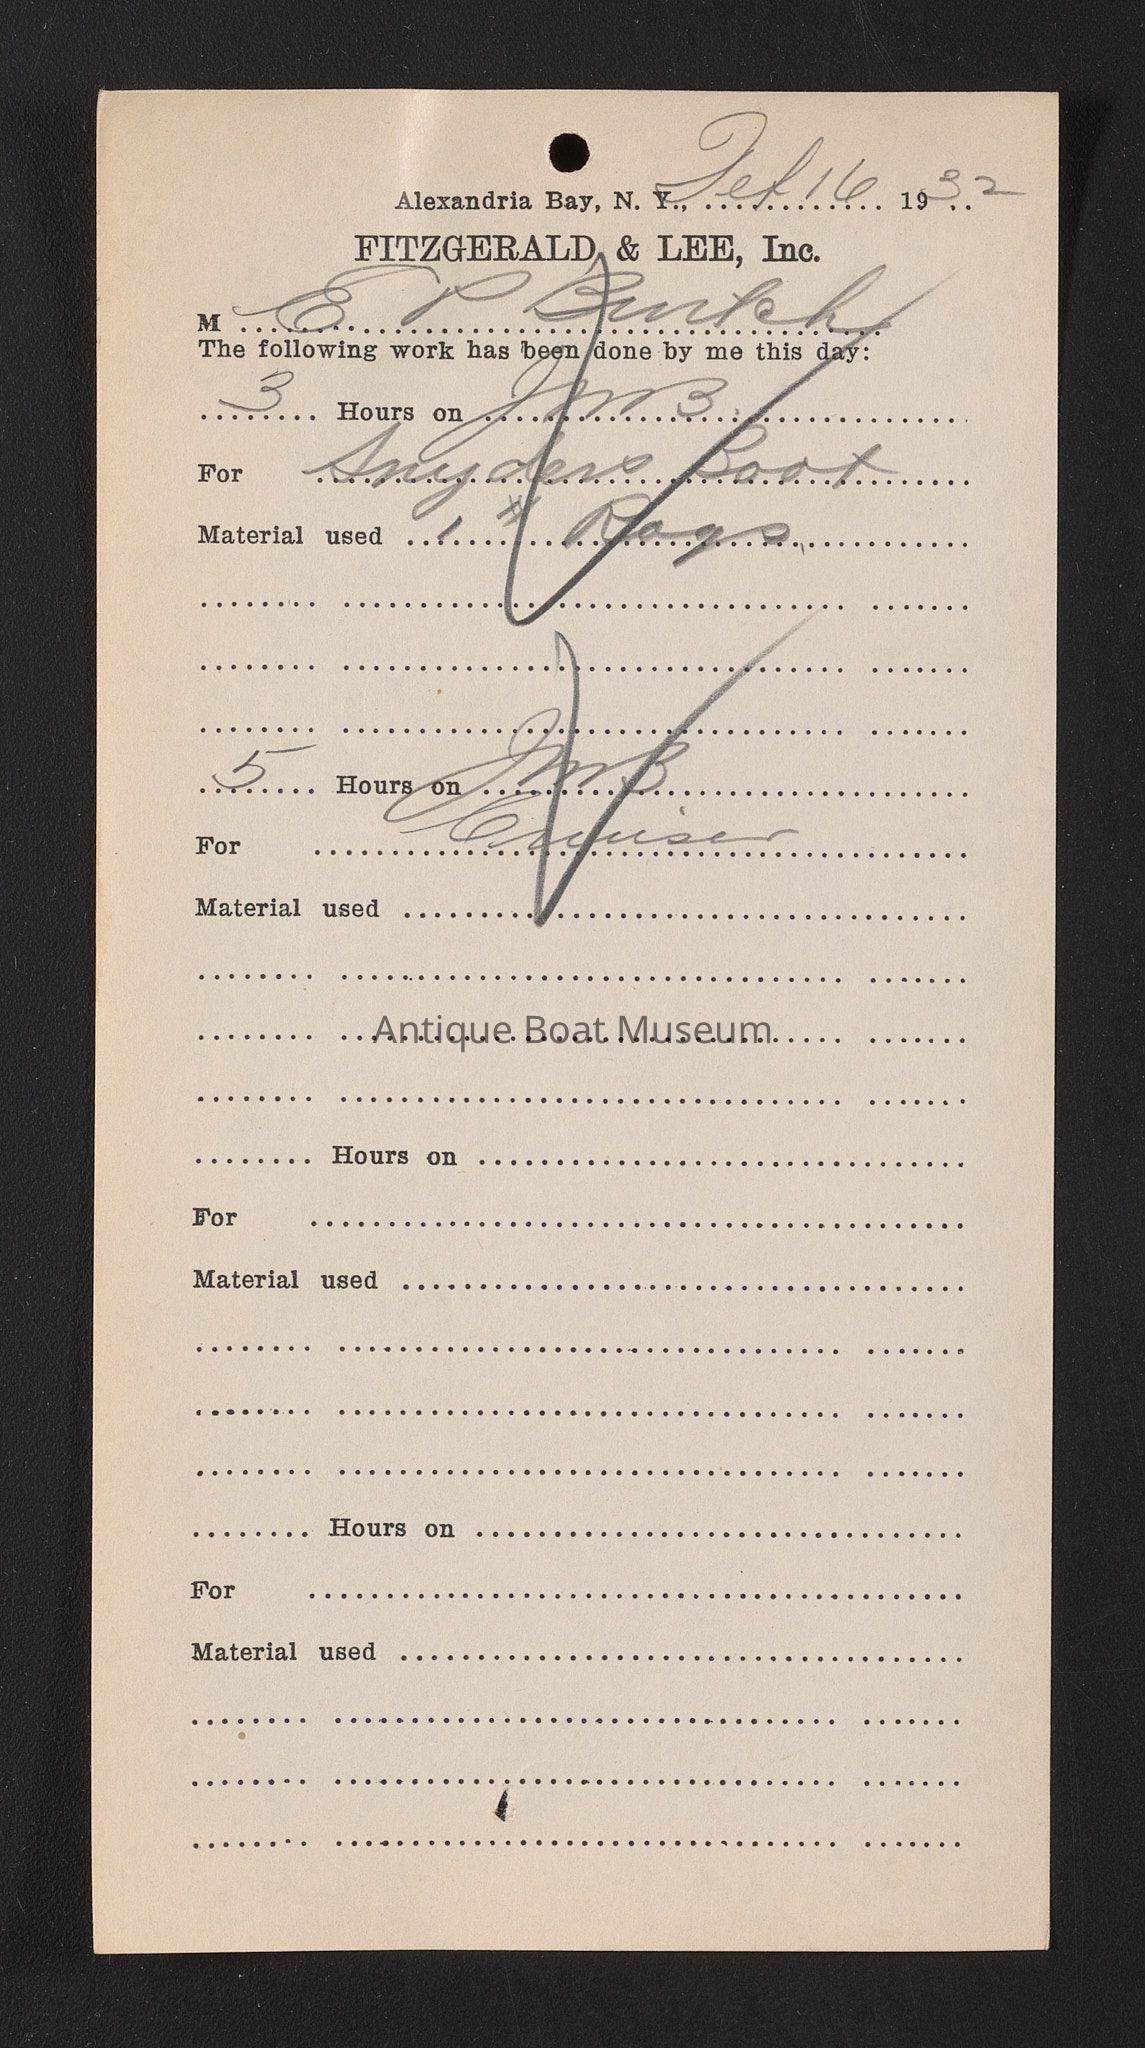 Alexandria Bay, N. Y., Feb 16 1932
FITZGERALD & LEE, Inc.
M E P Burtch
The following work has been done by me this day:
3 Hours on JMB
For Snyders Boat
Material used 1 # Rags
5 Hours on JMB
For Cruiser
Material used
Antique Boat Museum
Hours on
For
Material used
Hours on
For
Material used